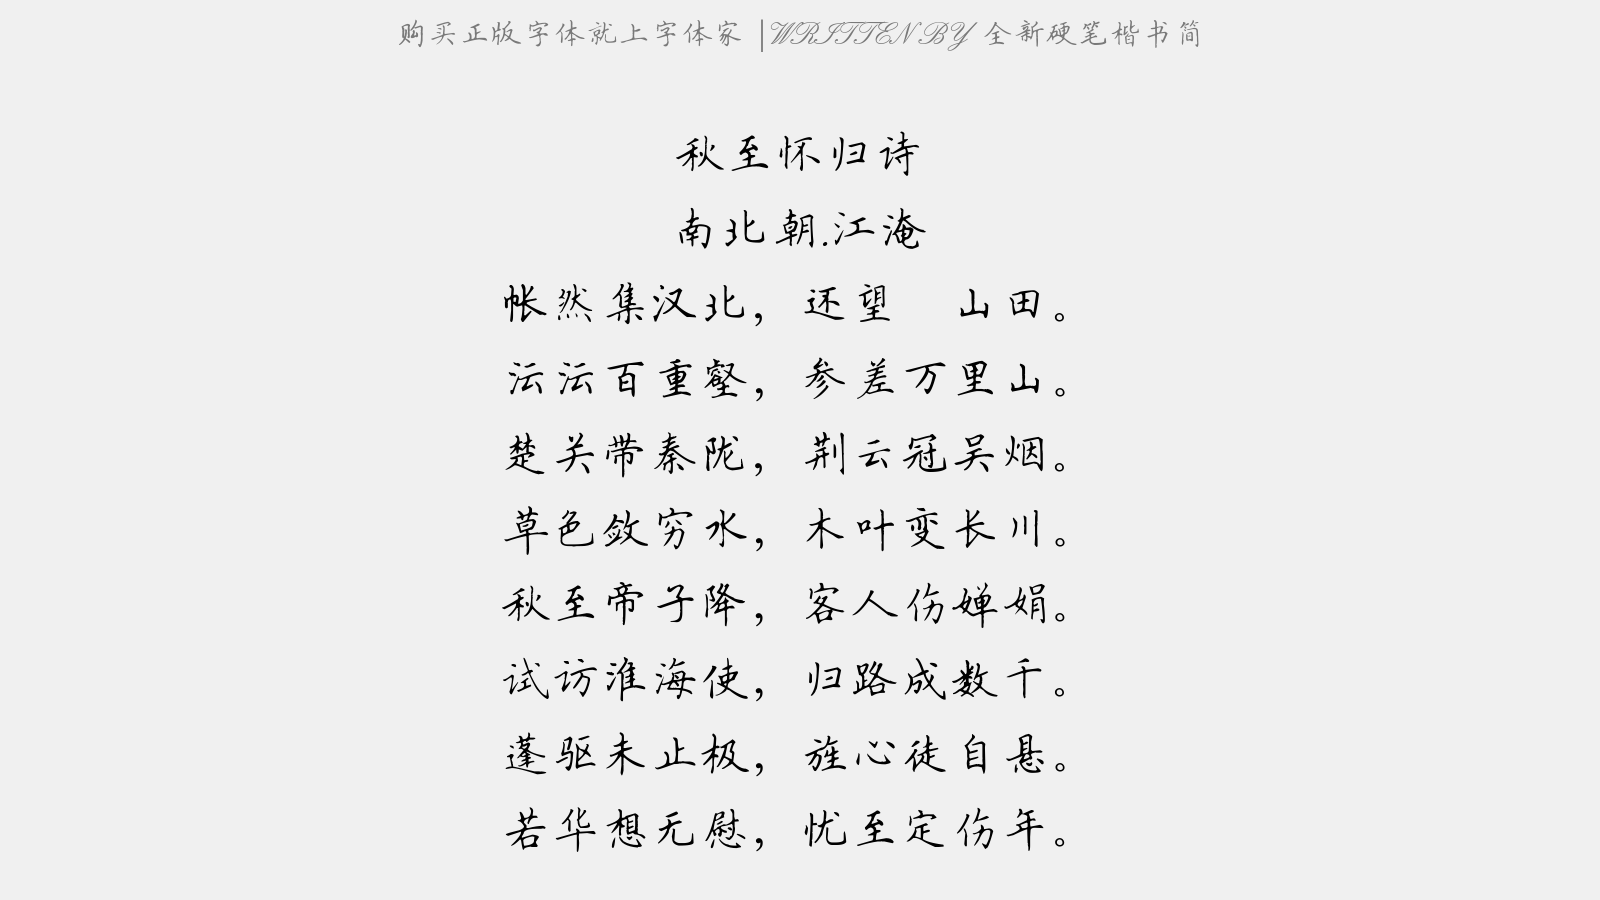 购买正版字体就上字体家 |WRITTEN BY 全新硬笔楷书简
秋至怀归诗
南北朝.江淹
帐然集汉北，还望　山田。
沄沄百重壑，参差万里山。
楚关带秦陇，荆云冠吴烟。
草色敛穷水，木叶变长川。
秋至帝子降，客人伤婵娟。
试访淮海使，归路成数千。
蓬驱未止极，旌心徒自悬。
若华想无慰，忧至定伤年。